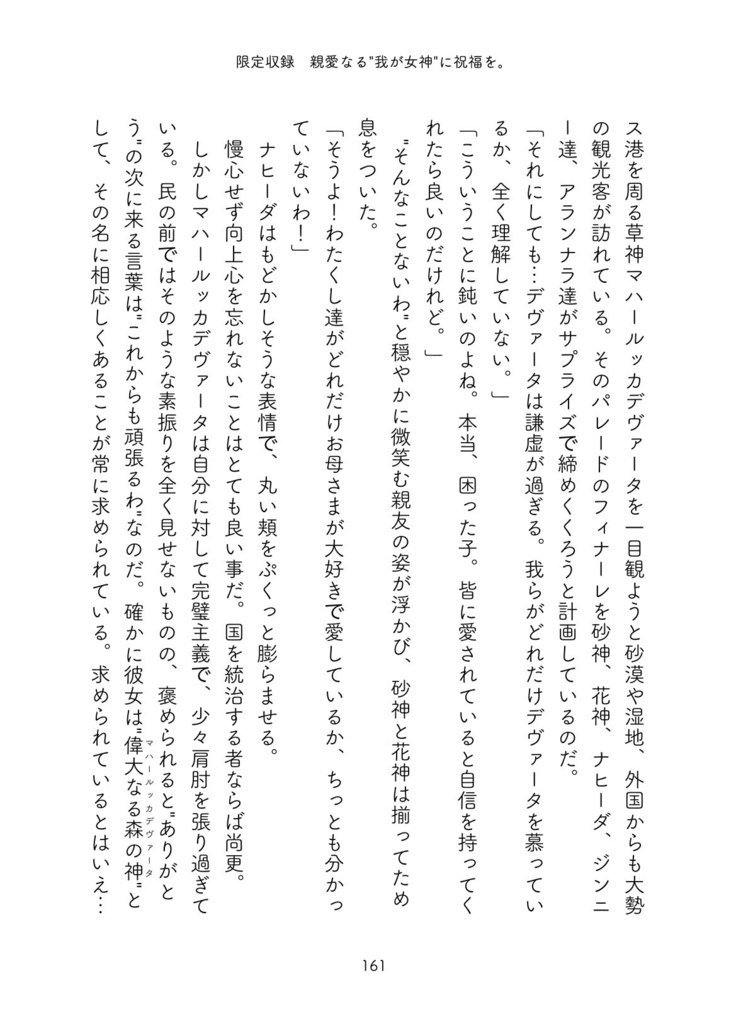 限定収録　親愛なる"我が女神"に祝福を。
ス港を周る草神マハールッカデヴァータを一目観ようと砂漠や湿地、外国からも大勢
の観光客が訪れている。そのパレードのフィナーレを砂神、花神、ナヒーダ、ジンニ
ー達、アランナラ達がサプライズで締めくくろうと計画しているのだ。
「それにしても…デヴァータは謙虚が過ぎる。我らがどれだけデヴァータを慕ってい
るか、全く理解していない。」
「こういうことに鈍いのよね。本当、困った子。皆に愛されていると自信を持ってく
れたら良いのだけれど。」
"そんなことないわ"と穏やかに微笑む親友の姿が浮かび、砂神と花神は揃ってため
息をついた。
「そうよ！わたくし達がどれだけお母さまが大好きで愛しているか、ちっとも分かっ
ていないわ！」
ナヒーダはもどかしそうな表情で、丸い頬をぷくっと膨らませる。
慢心せず向上心を忘れないことはとても良い事だ。国を統治する者ならば尚更。
しかしマハールッカデヴァータは自分に対して完璧主義で、少々肩肘を張り過ぎて
いる。民の前ではそのような素振りを全く見せないものの、褒められると"ありがと
う"の次に来る言葉は"これからも頑張るわ"なのだ。確かに彼女は"偉大なる森の神"と
マハールッカデヴァータ
して、その名に相応しくあることが常に求められている。求められているとはいえ…
161